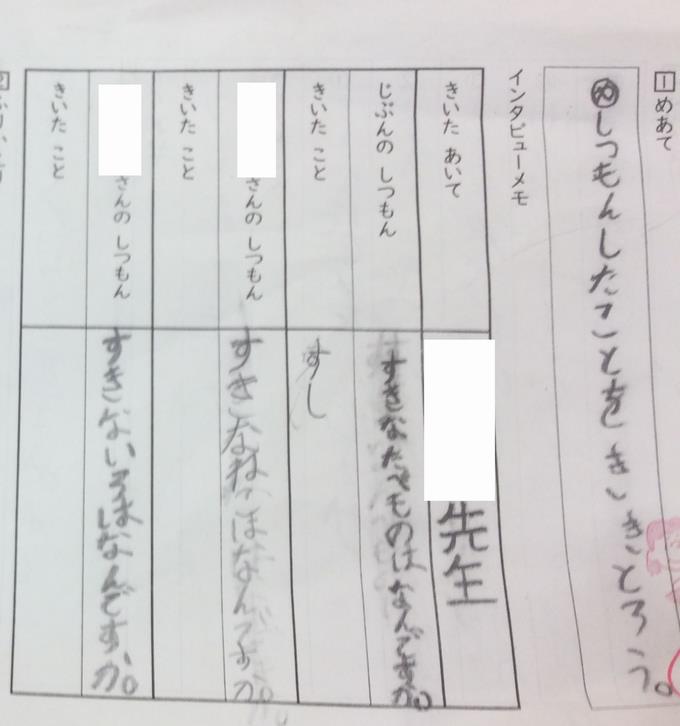 1 めあて
㋱しつもんしたことをききとろう。
インタビューメモ
きいた あいて
先生
じぶんの しつもん
すきなたべものはなんですか。
きいた こと
すし
さんの しつもん
すきなねこはなんですか。
きいた こと
さんの しつもん
すきな はなんですか。
きいた こと